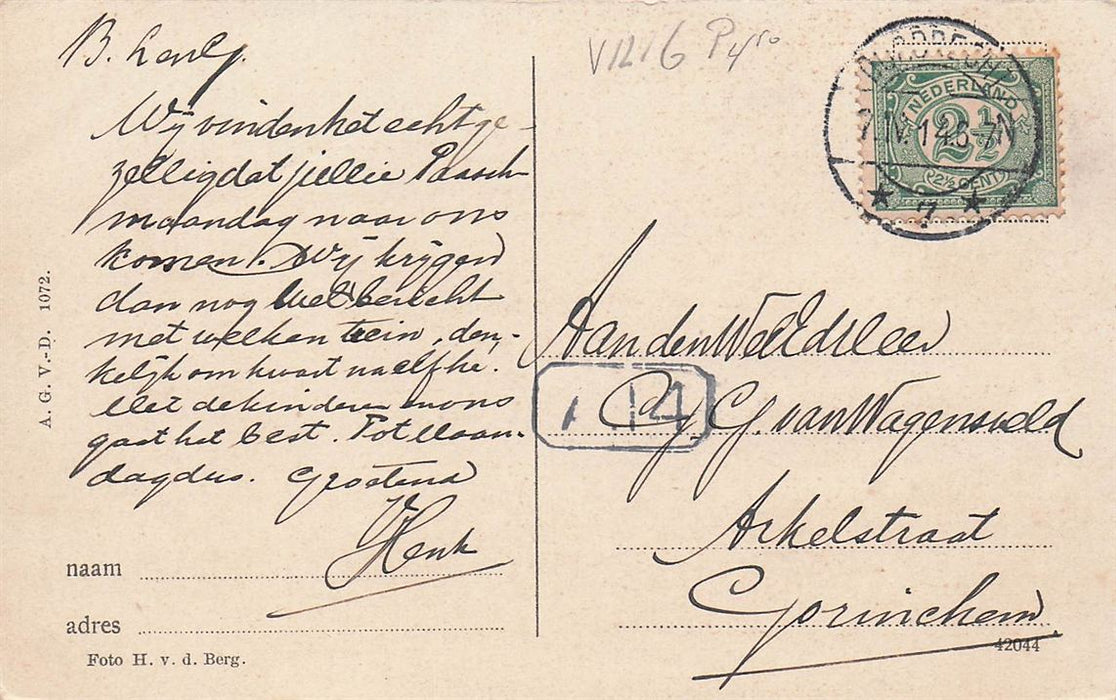 B. 
Wij vinden het echt ge-
zellig dat jullie Paasch
maandag naar ons
komen. Wij krijgen
dan nog wel bericht
met welken trein, den-
kelijk om kwart na elf he.
Met de kinderen en ons
gaat het best. Tot Maan-
dag dus. Groetend
Henk
naam
adres
Foto H. v. d. Berg.
A. G. V.-D. 1072.
V1216 P4
NEDERLAND
2½
2½ CENT
DORDRECHT
IV. 14.6-7N
7
Aan den WelEd. Heer
114
G. van Wageningen
Arkelstraat
Gorinchem
42044